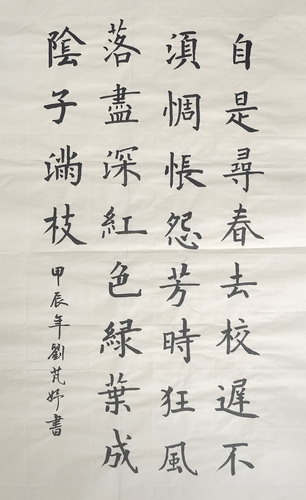 自是尋春去校遲不
須惆悵怨芳時狂風
落盡深紅色緑葉成
陰子滿枝
甲辰年劉芃妤書